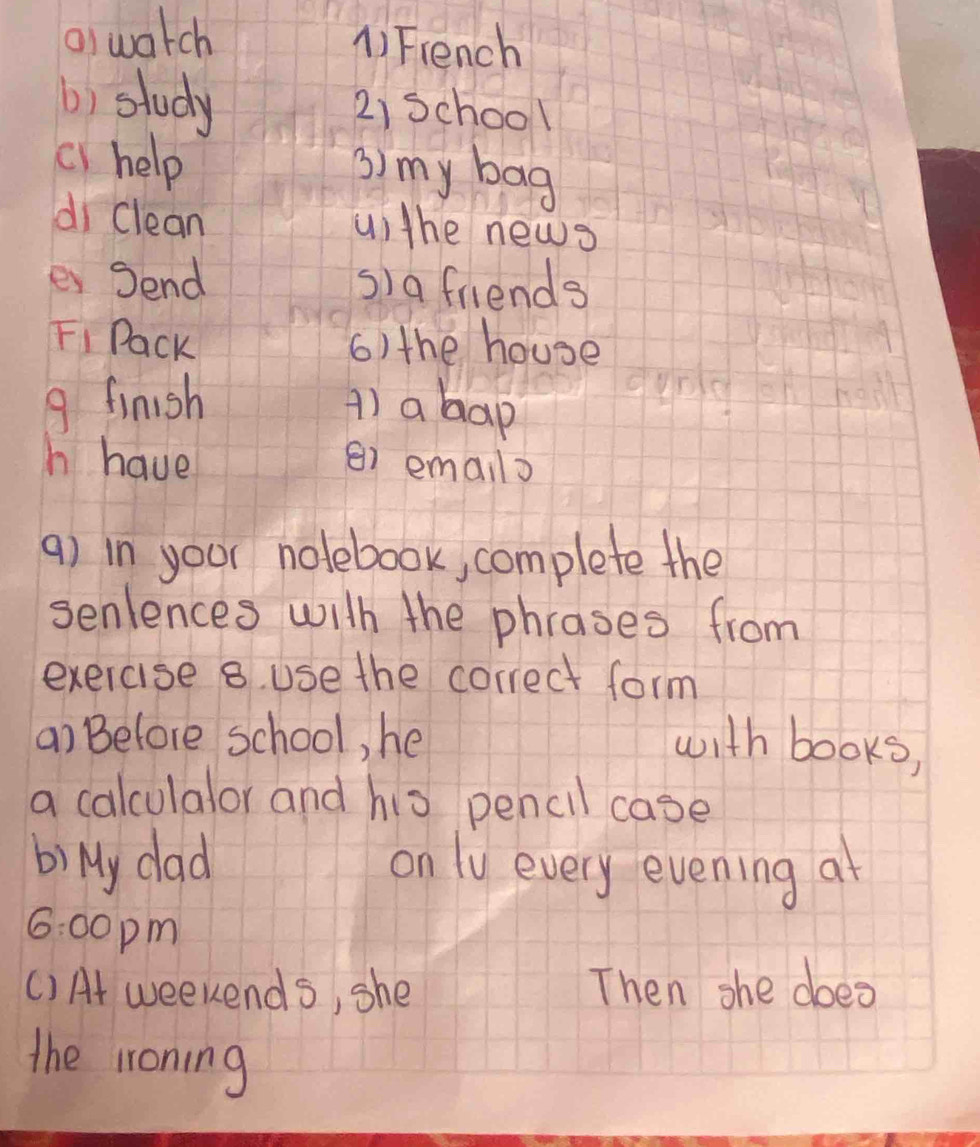 a) watch 1) French
b) study 2) School
c) help 3) my bag
d) Clean 4) the news
e) Send 5) a friends
F) Pack 6) the house
g finish 7) a bap
h have 8) emails
9) in your notebook, complete the
sentences with the phrases from
exercise 8. use the correct form
a) Before school, he with books,
a calculator and his pencil case
b) My dad on tv every evening at
6:00 pm
c) At weekends, she Then she does
the ironing